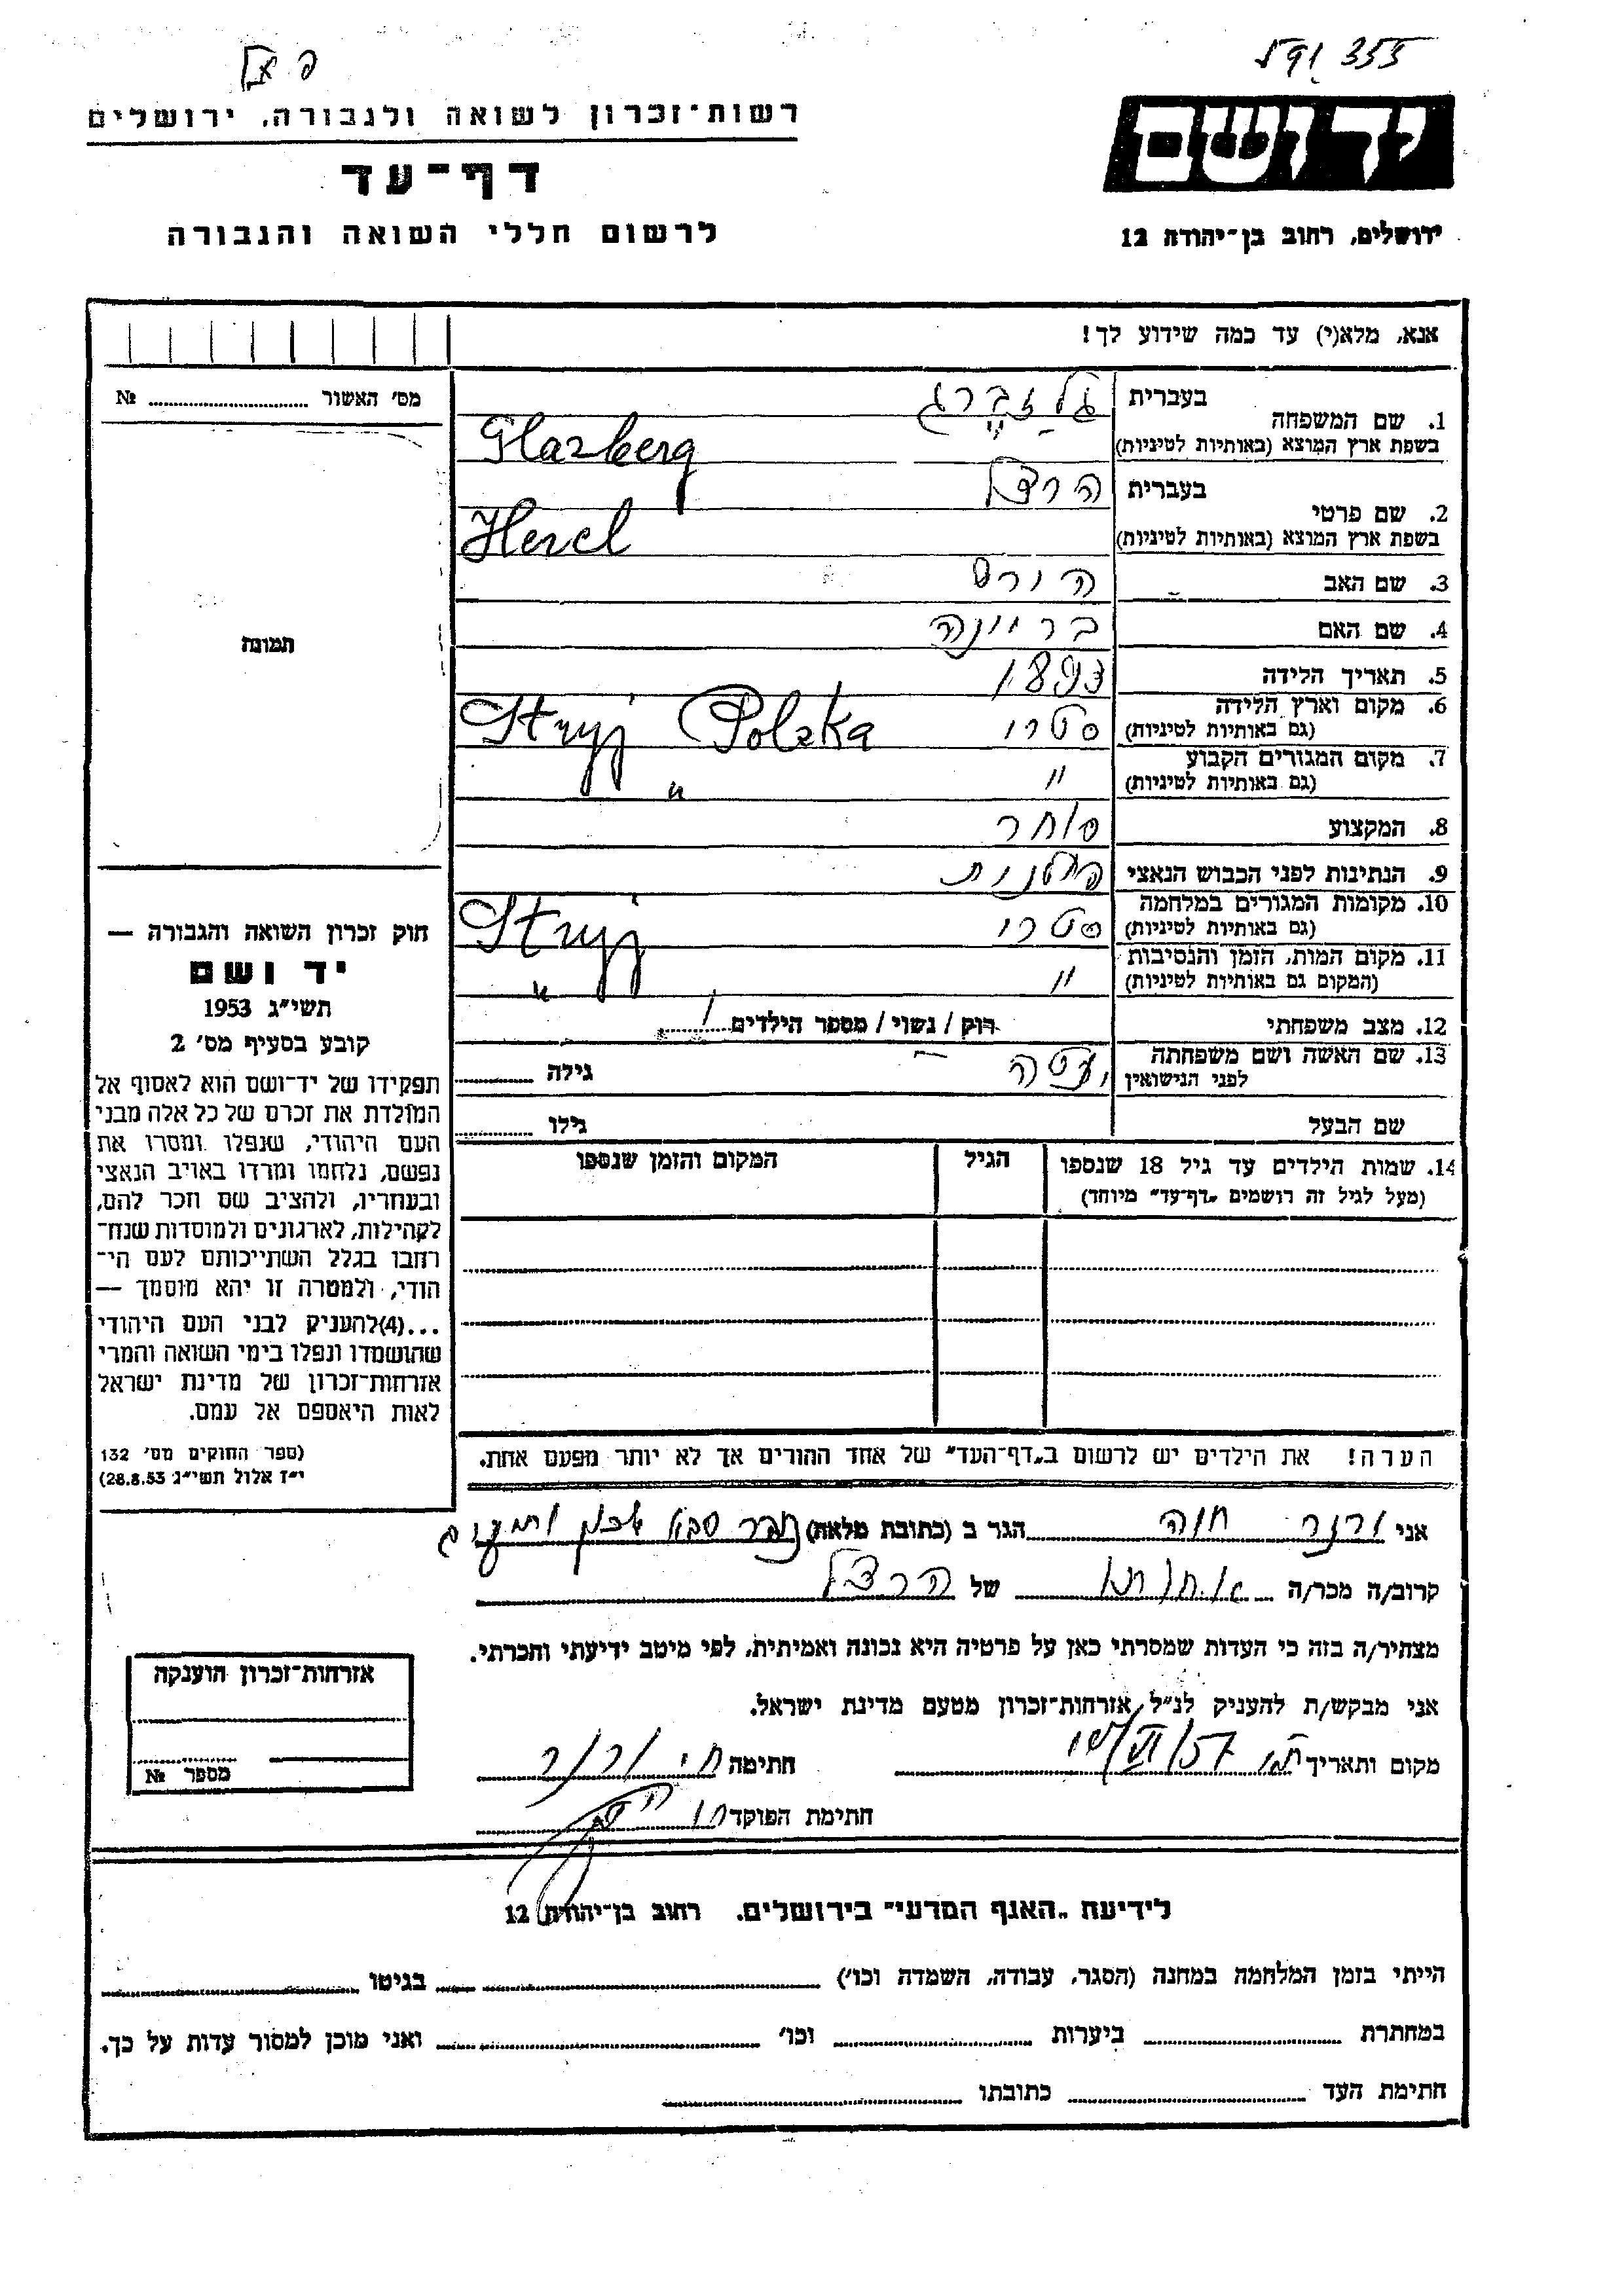 רשות־זכרון לשואה ולגבורה, ירושלים
דף־עד
לרשום חללי השואה והגבורה
יד ושם
ירושלים, רחוב בן־יהודה 12
אנא, מלא(י) עד כמה שידוע לך!
מס׳ האשור № ........
תמונה
1. שם המשפחה בעברית גלזברג
בשפת ארץ המוצא (באותיות לטיניות) Glazberg
2. שם פרטי בעברית הרצל
בשפת ארץ המוצא (באותיות לטיניות) Hercl
3. שם האב
4. שם האם
5. תאריך הלידה 1893
6. מקום וארץ הלידה (גם באותיות לטיניות) סטרי Stryj Polska
7. מקום המגורים הקבוע (גם באותיות לטיניות) " "
8. המקצוע סוחר
9. הנתינות לפני הכבוש הנאצי פולנית
10. מקומות המגורים במלחמה (גם באותיות לטיניות) סטרי Stryj
11. מקום המות, הזמן והנסיבות (המקום גם באותיות לטיניות) " "
12. מצב משפחתי רוק / נשוי / מספר הילדים 1
13. שם האשה ושם משפחתה לפני הנישואין גילה ........
שם הבעל גילו ........
14. שמות הילדים עד גיל 18 שנספו
(מעל לגיל זה רושמים „דף־עד" מיוחד)
הגיל
המקום והזמן שנספו
חוק זכרון השואה והגבורה —
יד ושם
תשי"ג 1953
קובע בסעיף מס׳ 2
תפקידו של יד־ושם הוא לאסוף אל
המולדת את זכרם של כל אלה מבני
העם היהודי, שנפלו ומסרו את
נפשם, נלחמו ומרדו באויב הנאצי
ובעוזריו, ולהציב שם וזכר להם,
לקהילות, לארגונים ולמוסדות שנח־
רבו בגלל השתייכותם לעם הי־
הודי, ולמטרה זו יהא מוסמך —
...(4)להעניק לבני העם היהודי
שהושמדו ונפלו בימי השואה והמרי
אזרחות־זכרון של מדינת ישראל
לאות היאספם אל עמם.
(ספר החוקים מס׳ 132
י"ז אלול תשי"ג 28.8.53)
הערה! את הילדים יש לרשום ב„דף־העד" של אחד ההורים אך לא יותר מפעם אחת.
אני ורנר חוה הגר ב (כתובת מלאה) כפר סבא שכון
קרוב/ה מכר/ה אחותו של הרצל
מצהיר/ה בזה כי העדות שמסרתי כאן על פרטיה היא נכונה ואמיתית, לפי מיטב ידיעתי והכרתי.
אני מבקש/ת להעניק לנ"ל אזרחות־זכרון מטעם מדינת ישראל.
מקום ותאריך VI/57 חתימה ורנר
חתימת הפוקד
אזרחות־זכרון הוענקה
מספר №
לידיעת „האגף המדעי" בירושלים. רחוב בן־יהודה 12
הייתי בזמן המלחמה במחנה (הסגר, עבודה, השמדה וכו׳) ........ בגיטו ........
במחתרת ........ ביערות ........ וכו׳ ........ ואני מוכן למסור עדות על כך.
חתימת העד ........ כתובתו ........